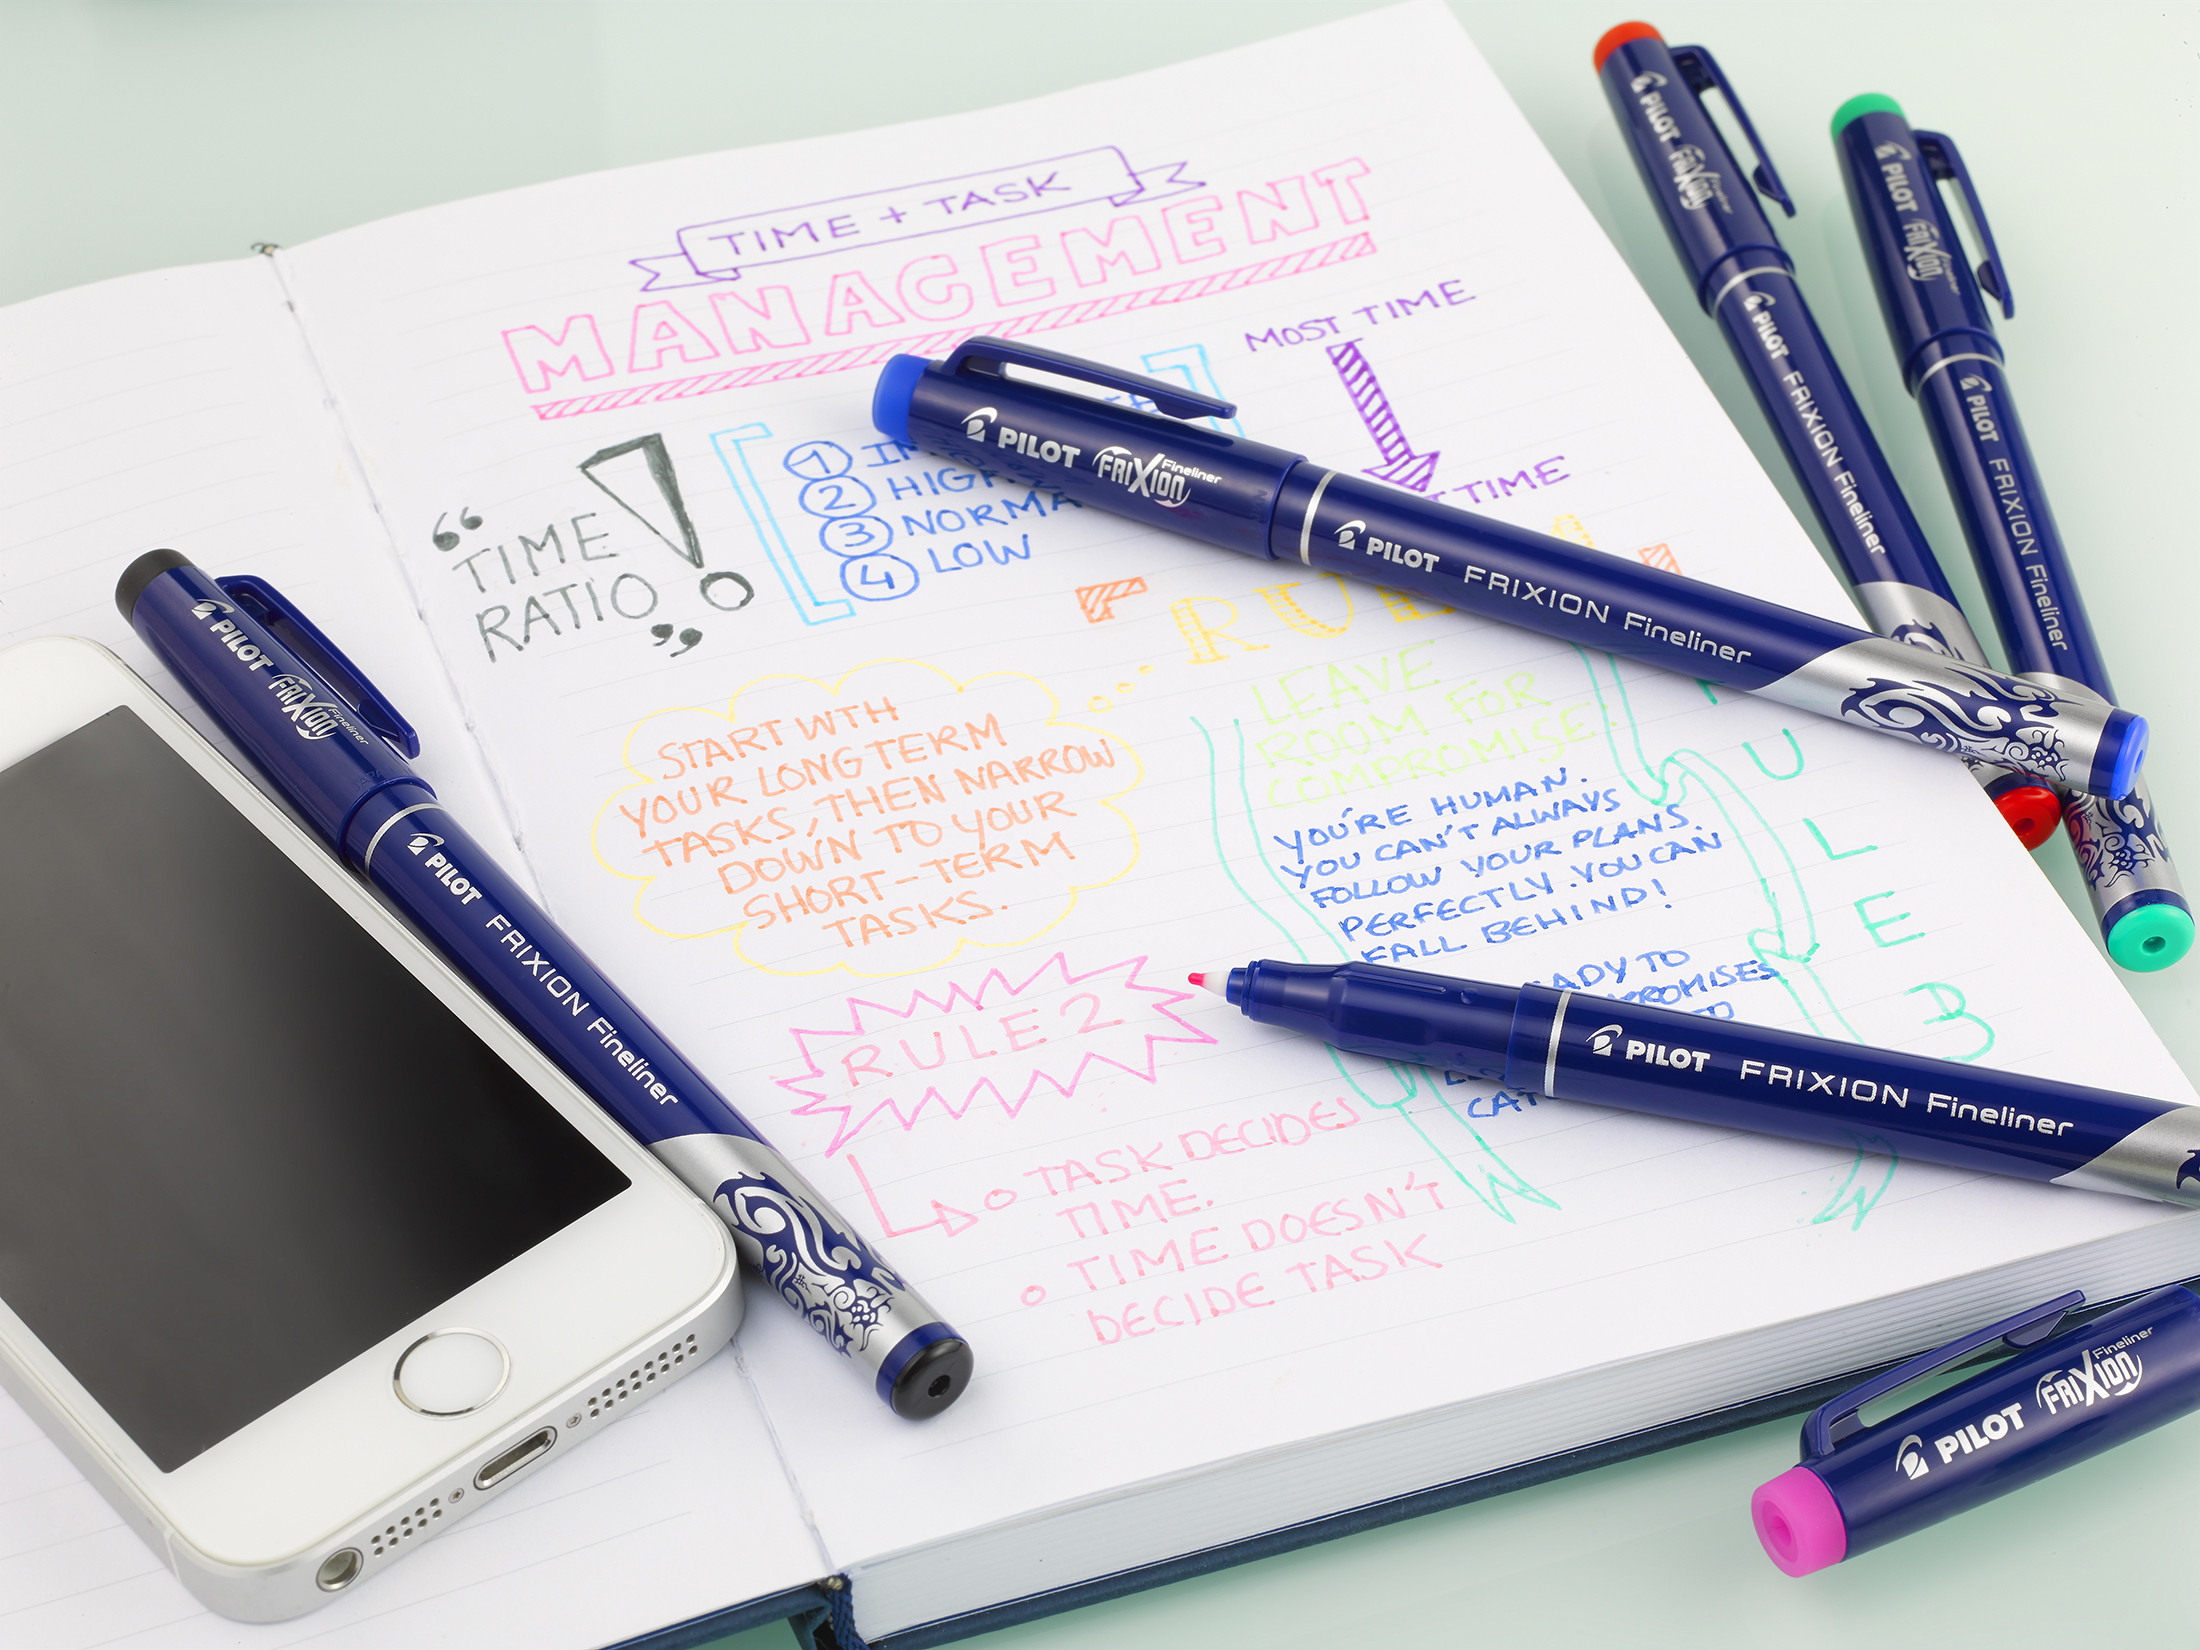 TIME + TASK
MANAGEMENT
MOST TIME
TIME
“TIME
RATIO”
!
1
2 HIGH
3 NORMA
4 LOW
RULE
START WTH
YOUR LONG TERM
TASKS, THEN NARROW
DOWN TO YOUR
SHORT-TERM
TASKS.
LEAVE
ROOM FOR
COMPROMISE!
YOU'RE HUMAN.
YOU CAN'T ALWAYS
FOLLOW YOUR PLANS
PERFECTLY. YOU CAN
FALL BEHIND!
TO
U
L
E
3
RULE 2
TASK DECIDES
TIME.
TIME DOESN'T
DECIDE TASK
PILOT FRIXION Fineliner
PILOT FRIXION Fineliner
PILOT FRIXION Fineliner
PILOT FRIXION Fineliner
PILOT FRIXION Fineliner
PILOT FRIXION Fineliner
PILOT FRIXION Fineliner
PILOT FRIXION Fineliner
PILOT FRIXION Fineliner
PILOT FRIXION Fineliner